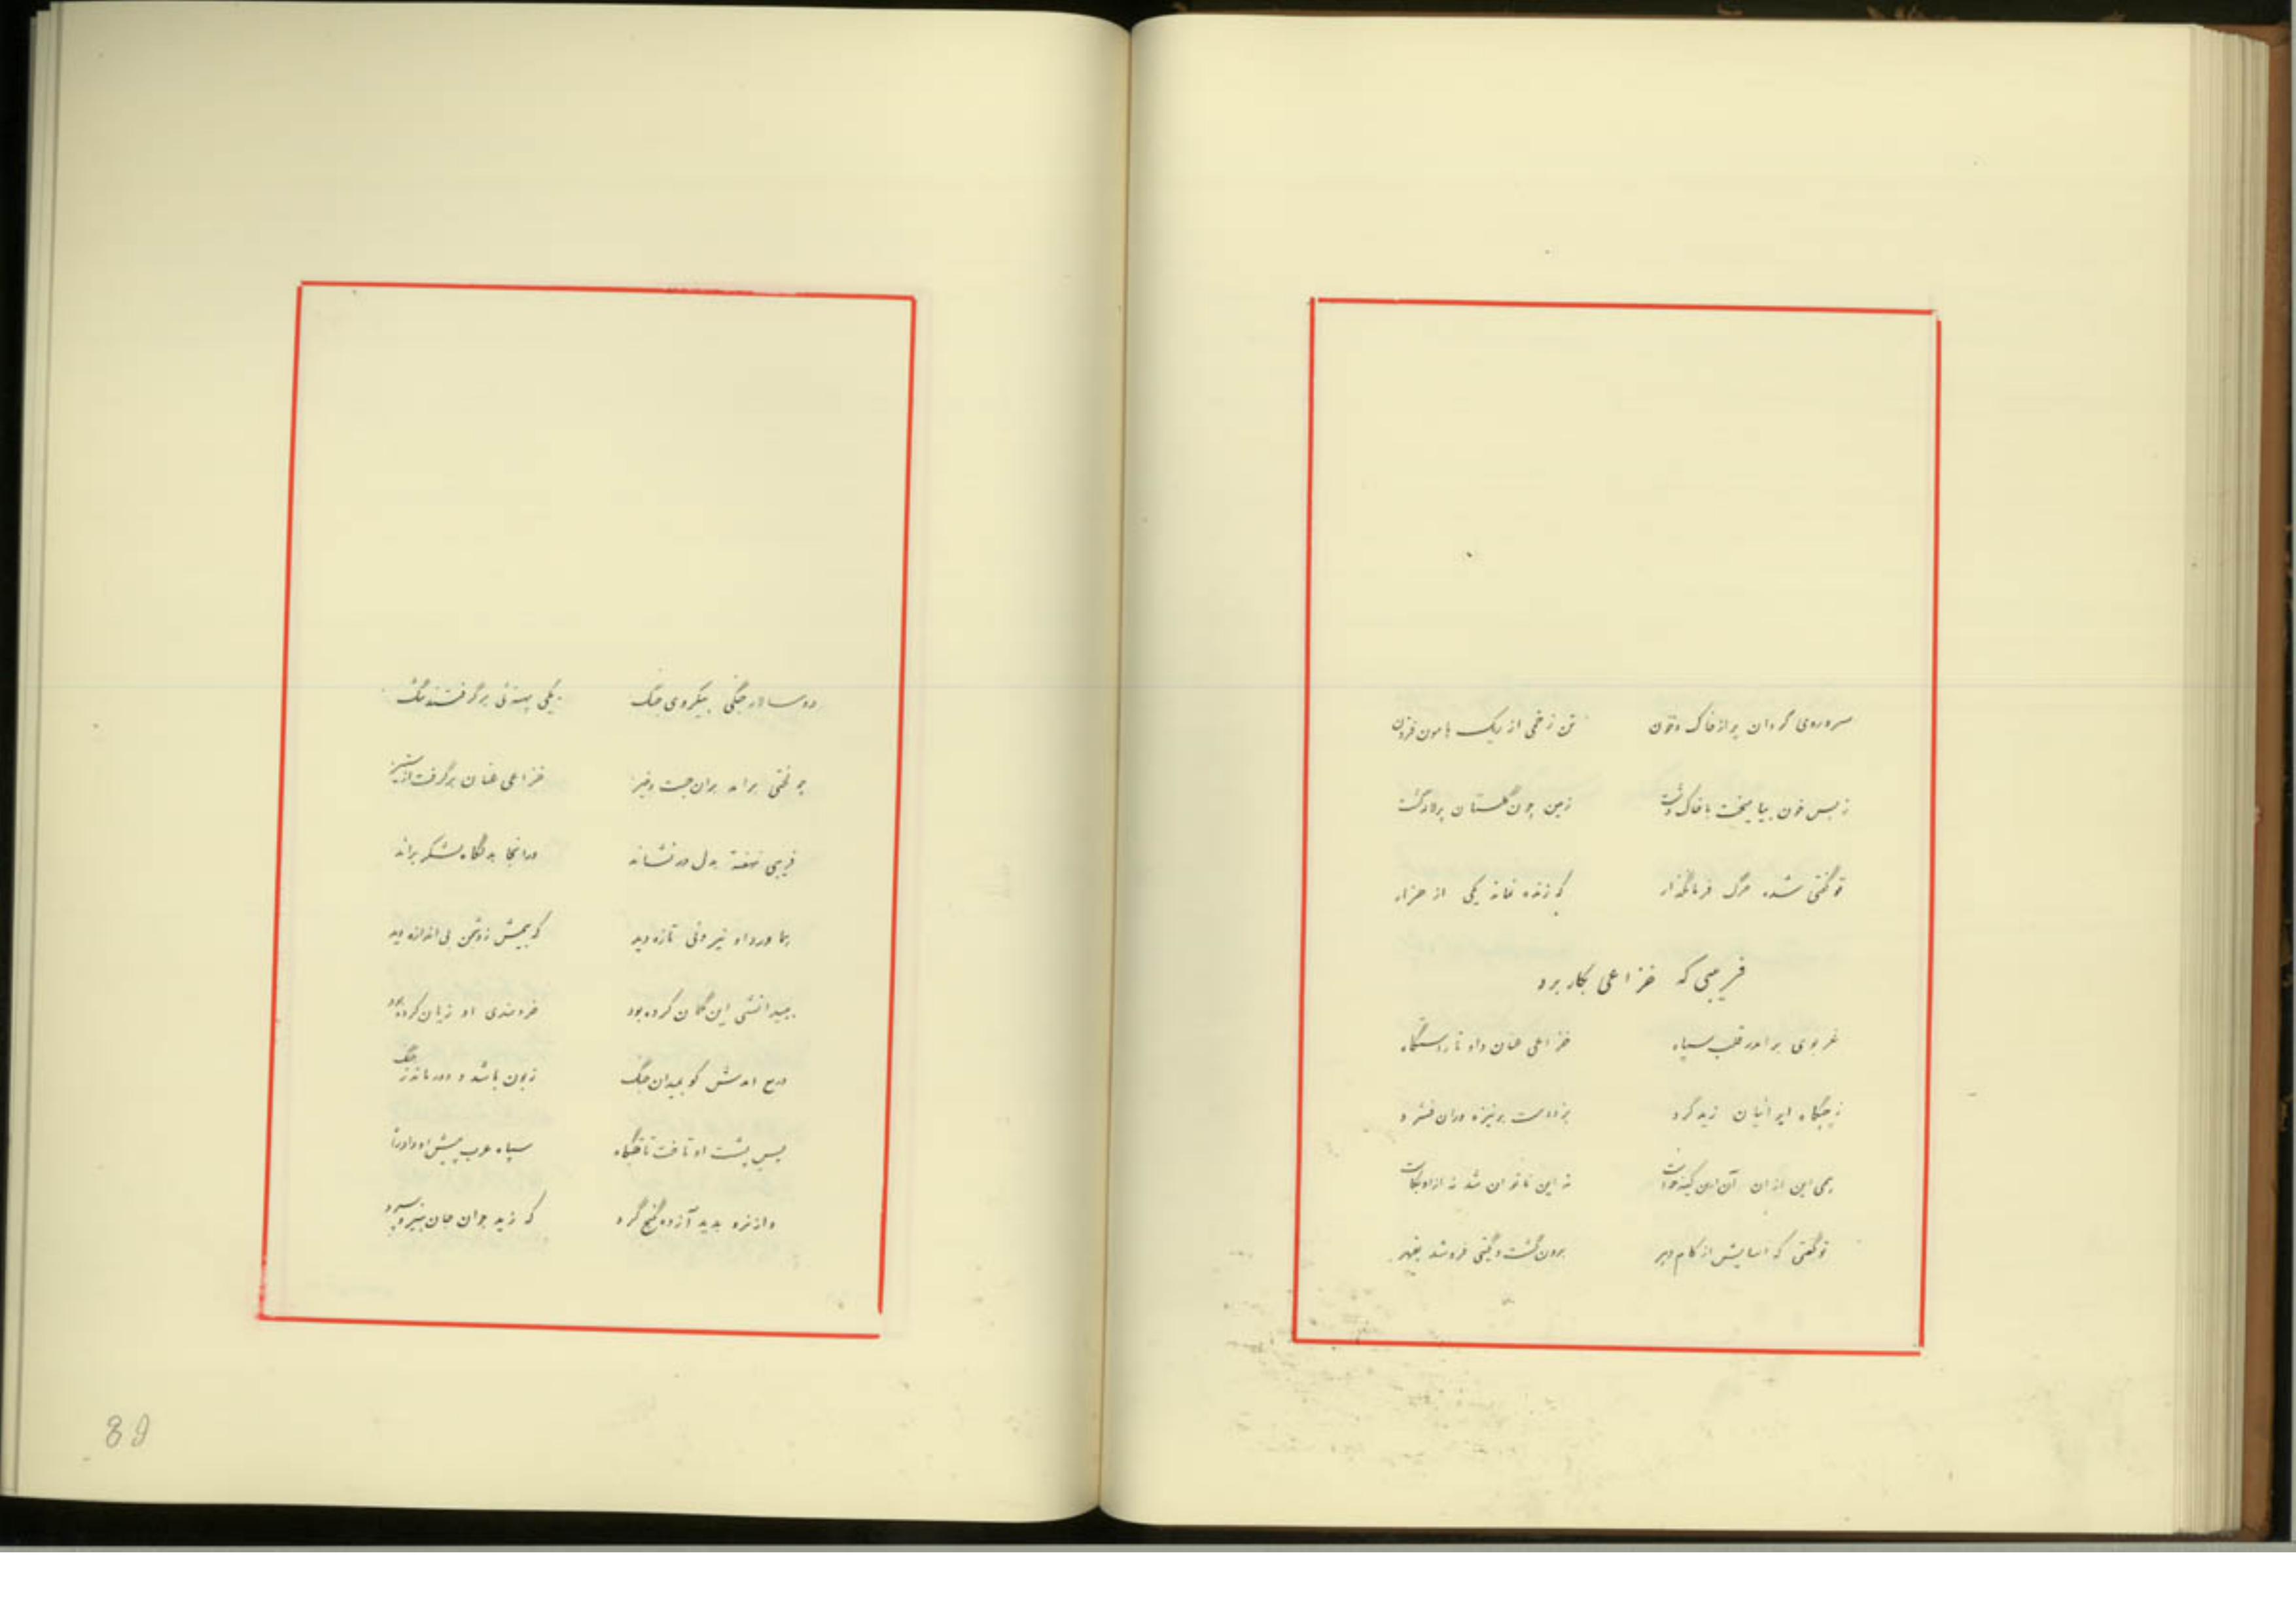 سر و روی گردان پر از خاک و خون تن زخمی از ریک هامون فزون
ز بس خون بیامیخت با خاک دشت زمین چون گلستان پر لاله گشت
تو گفتی شده مرگ فرمانگذار که زنده نماند یکی از هزار
فریبی که خزاعی بکار برد
غریوی بر آمد ز قلب سپاه خزاعی عنان داد تا رزمگاه
ز جنگاه ایرانیان زید گرد بزد دست بر نیزه و ران فشرد
همی این از آن آن ازین کینه خواست نه این ناتوان شد نه از او بکاست
تو گفتی که آسایش از کام دهر برون گشت و گیتی فرو شد بقهر
دو سالار جنگی بیکروی جنگ یکی پهنه‌ئی بر گرفتند تنگ
چو لختی بر آمد بر آن جست و خیز خزاعی عنان بر گرفت از ستیز
فریبی نهفته بدل در نشاند در آنجا به لشکر براند
هماورد او نیروئی تازه دید که بیمش ز دشمن بی اندازه دید
به بیدانشی این گمان کرده بود خردمندی او زیان کرده بود
دریغ آمدش کو بمیدان جنگ زبون باشد و دور ماند ز جنگ
پس پشت او تاخت تا قلبگاه سپاه عرب پیش او داد راه
وز آنرو بدید آزده گنج گرد که زید جوان جان بنیزه سپرد
89